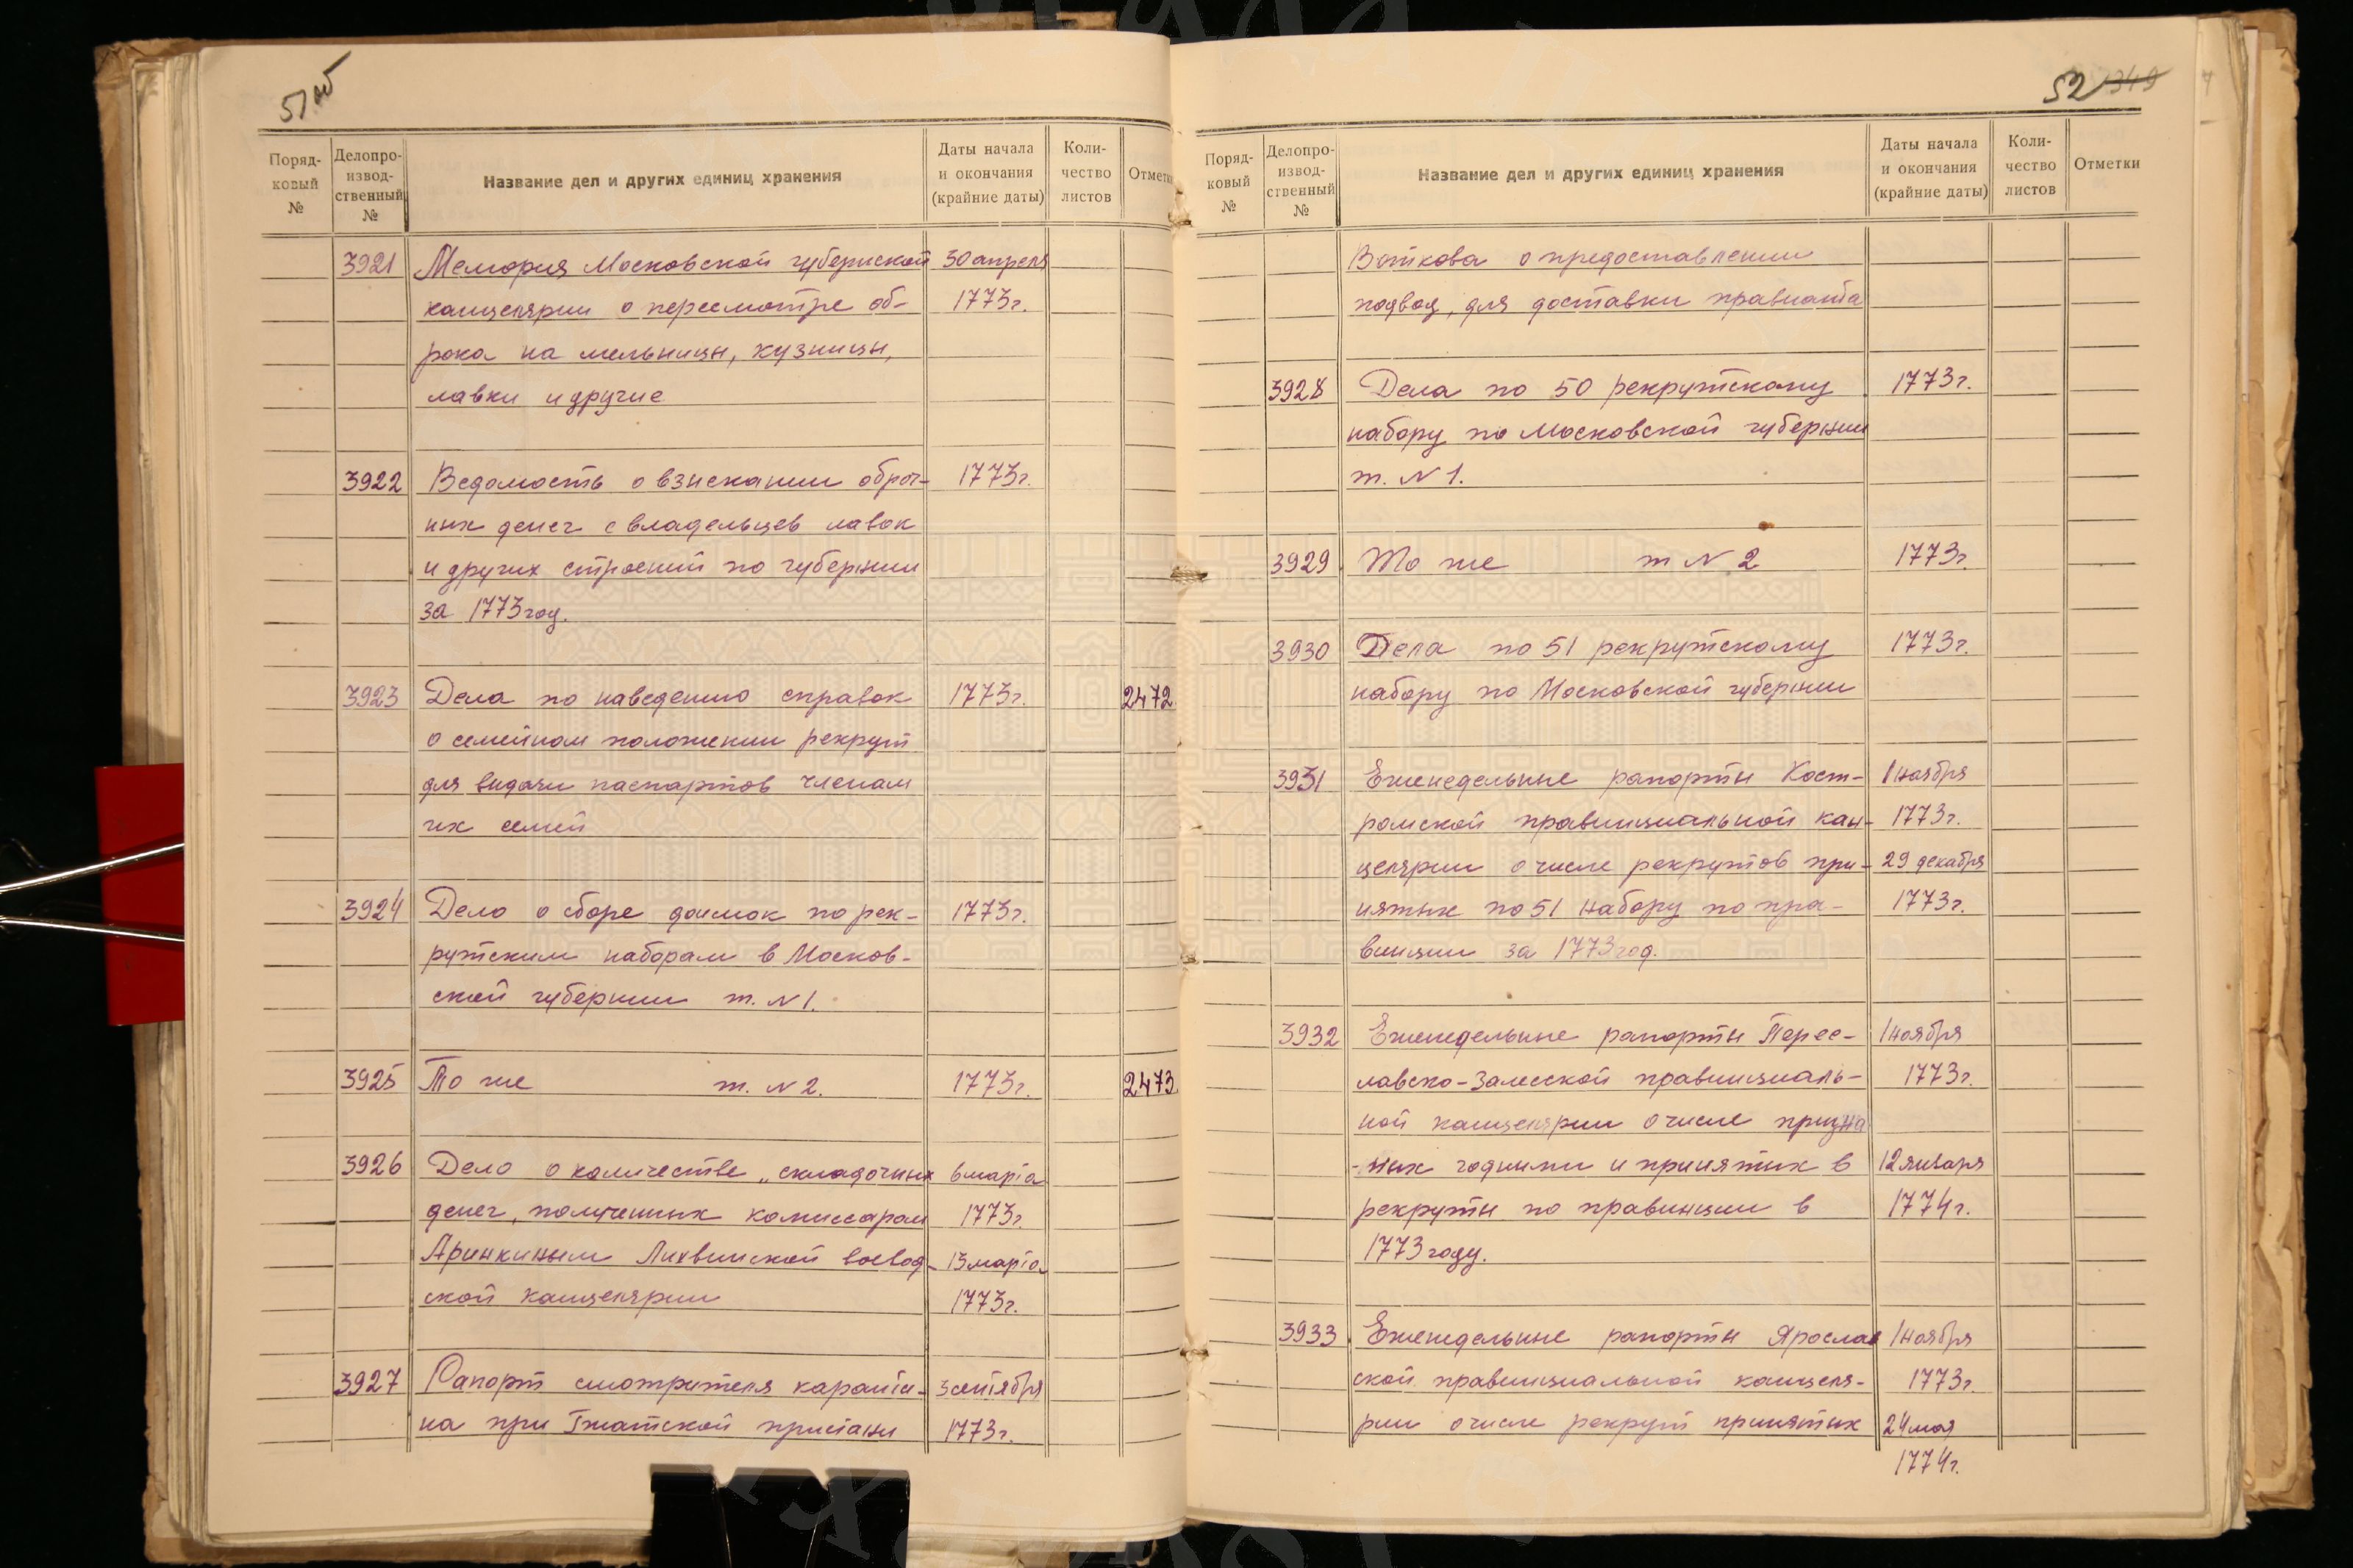 51об
Поряд-
ковый
№
Делопро-
извод-
ственный
№
Название дел и других единиц хранения
Даты начала
и окончания
(крайние даты)
Коли-
чество
листов
Отметки
3921 Мемория Московской губернской 30 апреля
канцелярии о пересмотре об- 1773г.
рока на мельницы, кузницы,
лавки и другие
3922 Ведомость о взыскании оброч- 1773г.
ных денег с владельцев лавок
и других строений по губернии
за 1773 год.
3923 Дела по наведению справок 1773г. 2472
о семейном положении рекрут
для выдачи паспортов членам
их семей
3924 Дело о сборе доимок по рек- 1773г.
рутским наборам в Москов-
ской губернии т. N 1.
3925 То же т. N 2. 1773г. 2473
3926 Дело о количестве „складочных 6 марта
денег, полученных комиссаром 1773г.
Аринкиным Лихвинской воевод- 13 марта
ской канцелярии 1773г.
3927 Рапорт смотрителя каранти- 3 сентября
на при Гжатской пристани 1773г.
52 349
Поряд-
ковый
№
Делопро-
извод-
ственный
№
Название дел и других единиц хранения
Даты начала
и окончания
(крайние даты)
Коли-
чество
листов
Отметки
Воткова о предоставлении
подвод, для доставки правианта
3928 Дела по 50 рекрутскому 1773г.
набору по Московской губернии
т. N 1.
3929 То же т N 2 1773г.
3930 Дела по 51 рекрутскому 1773г.
набору по Московской губернии
3931 Еженедельные рапорты Кост- 1 ноября
ромской правинциальной кан- 1773г.
целярии о числе рекрутов при- 29 декабря
нятых по 51 набору по пра- 1773г.
винции за 1773 год.
3932 Еженедельные рапорты Перее- 1 ноября
лавско-Залесской правинциаль- 1773г.
ной канцелярии о числе призна
-ных годными и принятых в 12 января
рекруты по правинции в 1774г.
1773 году.
3933 Еженедельные рапорты Ярослав 1 ноября
ской правинциальной канцеля- 1773г.
рии о числе рекрут принятых 24 мая
1774г.